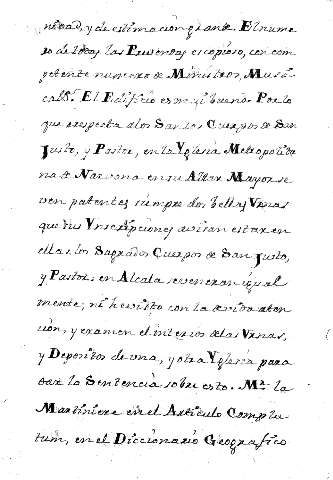 nidad, y de estimacion grande. El nume
ro de todas las Prevendas es copioso, con com
petente numero de Ministros, Musi-
cos &. El Edificio es mui bueno. Por lo
que respecta a los Santos Cuerpos de San
Justo, y Pastor, en la Yglesia Metropolita
na de Narvona en su Altar Mayor se
ven patentes siempre dos bellas Vrnas
que sus Ynscripciones avisan estar en
ellas los Sagrados Cuerpos de San Justo,
y Pastor: en Alcala se veneran igual
mente; ni he visto con la devida aten
cion, y examen el interior de las Vrnas,
y Depositos de una, y otra Yglesia para
dar la Sentencia sobre esto. Mr. la
Martiniere en el Articulo Complu-
tum, en el Diccionario Geografico